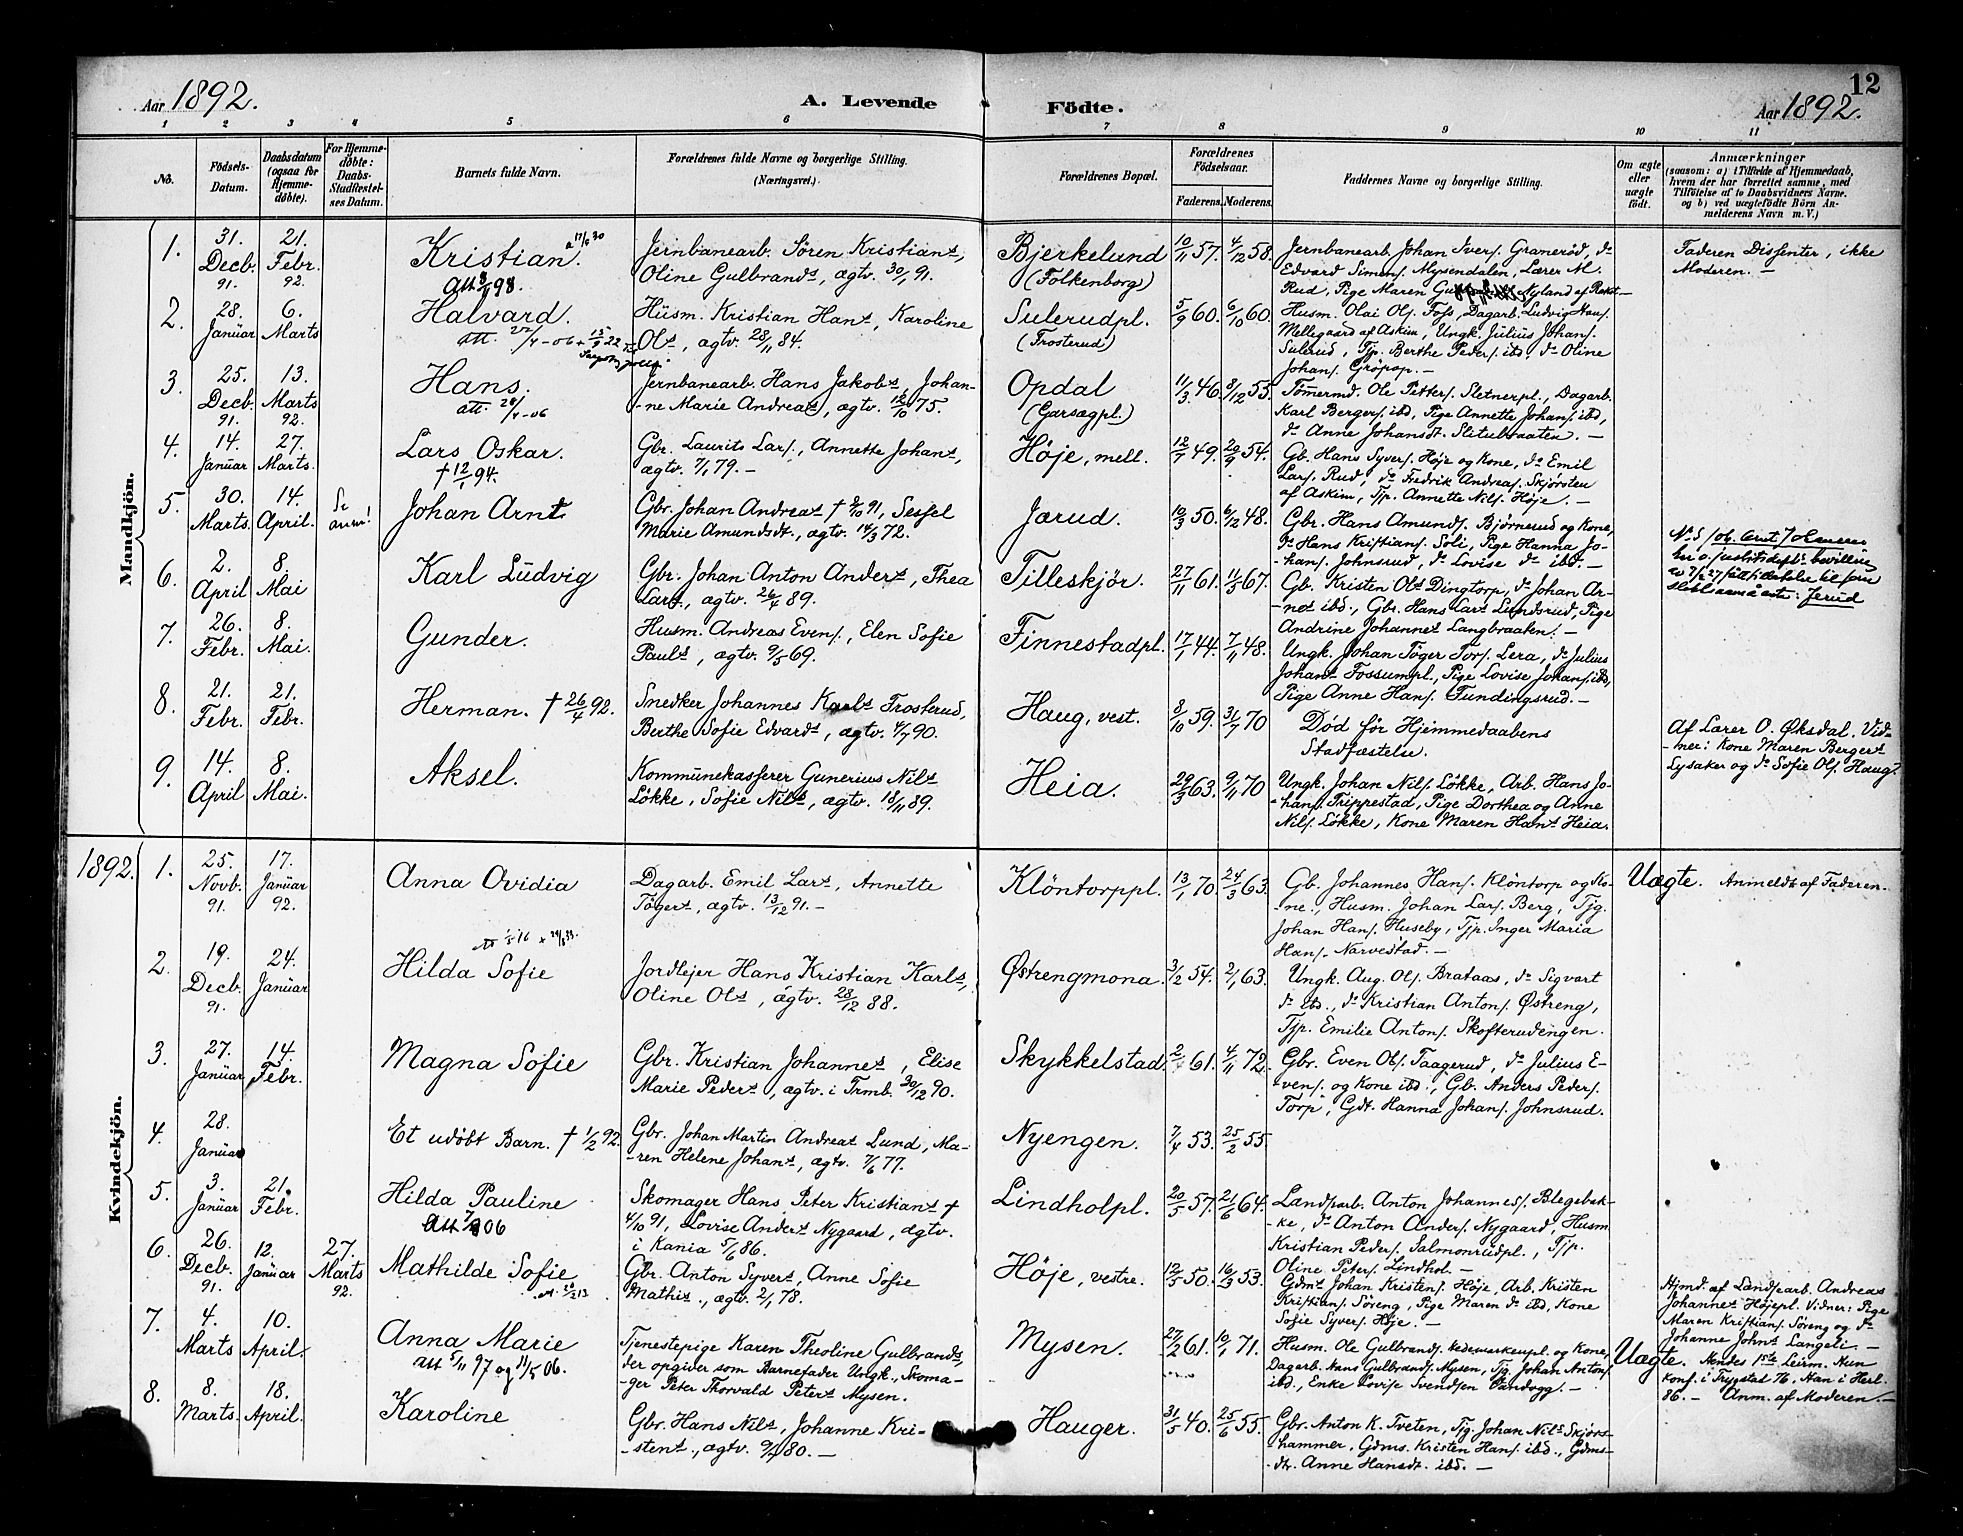 12
Aar 1892.
A. Levende Födte.
Aar 1892.
1 2 3 4 5 6 7 8 9 10 11
No.
Födsels-Datum.
Daabsdatum (ogsaa for Hjemme-døbte).
For Hjemme-døbte: Daabs-Stadfæstel-ses Datum.
Barnets fulde Navn.
Forældrenes fulde Navne og borgerlige Stilling. (Næringsvei).
Forældrenes Bopæl.
Forældrenes Födselsaar.
Faderens. Moderens.
Faddernes Navne og borgerlige Stilling.
Om ægte eller uægte født.
Anmærkninger
(saasom: a) i Tilfælde af Hjemmedaab, hvem der har forrettet samme, med Tilföielse af to Daabsvidners Navne. og b) ved uægtefödte Börn An-melderens Navn m. V.)
Mandkjön.
1. 31. Decb. 91. 21. Febr. 92.
Kristian.
Jernbanearb. Sören Kristians,
Oline Gulbrands, ægtv. 30/1 91.
Bjerkelund (Folkenborg)
10/11 57. 4/12 58.
Jernbanearb. Johan Ivers. Graneröd, ds
Edvard Simens. Mysendalen, Lærer M.
Rud, Pige Maren Nyland af Rakst.—
Faderen Dissenter, ikke
Moderen. —
2. 28. Januar 6. Marts
Halvard.
Husm. Kristian Hans, Karoline
Ols, ægtv. 28/11 84.
Sulerudpl. (Frosterud)
5/9 60. 6/10 60.
Husm. Olai Ols. Foss, Dagarb. Ludvig Hans.
Mellegaard af Askim, Ungk. Julius Johans.
Sulerud, Tjp. Berthe Peders. ibd, ds Oline
Johans. Gröpop. —
3. 25. Decb. 91. 13. Marts 92.
Hans.
Jernbanearb. Hans Jakobs, Johan-
-ne Marie Andreas, ægtv. 75.
Opdal (Garsegpl.)
11/3 46. 8/12 55.
Tömermd. Ole Petters. Sletnerpl., Dagarb.
Karl Bergers. ibd, Pige Annette Johans. ibd,
ds Anne Johansdt. Slitubraaten. —
4. 14. Januar 27. Marts.
Lars Oskar.
† 12/1 94.
Gbr. Laurits Lars., Annette Johans,
ægtv. 7/1 79. —
Høje, mell.
12/7 49. 20/9 54.
Gb. Hans Syvers. Høje og Kone, ds Emil
Lars. Rud, ds Fredrik Andreas. Skjørsten
af Askim, Tjp. Annette Nils. Høje. —
5. 30. Marts. 14. April. Se anm!
Johan Arnt.
Gbr. Johan Andreas † 91, Sessel
Marie Amundsdt., ægtv. 14/3 72.
Jærud.
10/3 50. 6/12 48.
Gbr. Hans Amunds. Bjørnerud og Kone,
ds Hans Kristians. Soli, Pige Hanna Jo-
hans. Johnsrud, ds Lovise ds ibd. —
6. 2. April 8. Mai
Karl Ludvig
Gbr. Johan Anton Anders, Thea
Lars., ægtv. 26/4 89.
Tilleskjör.
27/11 61. 11/5 67.
Gb. Kristen Ols Dingtorp, ds Johan Ar-
-nes ibd., Gbr. Hans Lars Lundsrud, Pige
Andrine Johannes Langbraaten. —
7. 26. Febr. 8. Mai.
Gunder.
Husm. Andreas Evens., Elen Sofie
Pauls, ægtv. 9/5 69.
Finnestadpl.
17/1 44. 7/11 48.
Ungk. Johan Töger Tors. Lera, ds Julius
Johans Fossumpl., Pige Lovise Johans. ibd,
Pige Anne Hans. Fundingsrud. —
8. 21. Febr. 21. Febr.
Herman. † 26/4 92.
Snedker Johannes Karls Frosterud,
Berthe Sofie Edvards, ægtv. 4/7 90.
Haug, vest.
8/10 59. 31/7 70
Död för Hjemmedaabens
Stadfæstelse.
Af Lærer O. Øksdal. Vid-
-ner: Kone Maren Bergers
Lysaker og ds Sofie Ols. Haug.
9. 14. April 8. Mai.
Aksel.
Kommunekasserer Gunerius Nils
Løkke, Sofie Nils, ægtv. 18/11 89.
Heia.
29/3 63. 9/11 70
Ungk. Johan Nils. Løkke, Arb. Hans Jo-
-hans. Trippestad, Pige Dorthea og Anne
Nils. Løkke, Kone Maren Hans Heia.
1892.
Kvindekjön.
1. 25. Novb. 91. 17. Januar 92.
Anna Ovidia
Dagarb. Emil Lars, Annette
Tögers, ægtv. 13/12 91. —
Klöntorppl.
13/1 70. 24/3 63.
Gb. Johannes Hans. Klöntorp og Ko-
-ne., Husm. Johan Lars. Berg, Tjg.
Johan Hans. Huseby, Tjp. Inger Maria
Hans. Narvestad. —
Uægte. Anmeldt af Faderen.
2. 19. Decb. 91. 24. Januar
Hilda Sofie
Jordlejer Hans Kristian Karls,
Oline Ols, ægtv. 28/12 88.
Østrengmona.
3/12 54. 2/1 63.
Ungk. Aug. Ols. Brataas, ds Sigvart
ds ibd., ds Kristian Antons. Østreng,
Tjp. Emilie Antons. Skofterudengen.
3. 27. Januar 14. Febr.
Magna Sofie
Gbr. Kristian Johannes, Elise
Marie Peders, ægtv. i Trmb. 30/12 90.
Skykkelstad
61. 4/11 72.
Gbr. Even Ols. Taagerud, ds Julius E-
-vens. og Kone ibd., Gb. Anders Peders.
Torp, Gdt. Hanna Johans. Johnsrud.
4. 28. Januar
Et udöbt Barn. † 1/2 92.
Gbr. Johan Martin Andreas Lund, Ma-
-ren Helene Johans, ægtv. 7/6 77.
Nyengen.
7/4 53. 25/2 55.
5. 3. Januar 21. Febr.
Hilda Pauline
Skomager Hans Peter Kristians †
4/10 91, Lovise Anders Nygaard, ægtv.
i Kania 5/6 86.
Lindholpl.
20/5 57. 21/6 64.
Landparb. Anton Johannes. Blegebak-
-ke, ds Anton Anders. Nygaard, Husm
Kristian Peders. Salmonrudpl., Tjp.
Oline Peters. Lindhol. —
6. 26. Decb. 91. 12. Januar 27. Marts 92.
Mathilde Sofie
Gbr. Anton Syvers, Anne Sofie
Mathis., ægtv. 2/1 78.
Høje, vestre.
12/5 50. 16/3 53.
Gdms Johan Kristens. Höje, Arb. Kristen
Kristians. Söreng, Pige Maren ds ibd, Kone
Sofie Syvers. Höje. —
Hjmd. af Landparb. Andreas
Johannes Højepl. Vidner: Pige
Maren Kristians. Söreng og ds
Johanne Johns Langeli. —
7. 4. Marts 10. April.
Anna Marie
att 5/11 97 og 11/5 06.
Tjenestepige Karen Theoline Gulbrands,
der opgiver som Barnefader Ungk., Skoma-
-ger Peter Thorvald Peters Mysen.
Mysen.
27/2 61. 10/1 71.
Husm. Ole Gulbrands. Hedemarkenpl. og Kone,
Dagarb. Hans Gulbrands. Mysen, Tjg. Johan Antons.
ibd., Enke Lovise Svendsen Sandvgg. —
Uægte. Hendes 1ste Leirm. Hun
konf. i Trygstad 76, Han i Herl.
86. — Anm. af Moderen. —
8. 8. Marts. 18. April.
Karoline
Gbr. Hans Nils, Johanne Kri-
-stens, ægtv. 80. —
Hauger.
31/5 40. 25/6 55.
Gbr. Anton K. Tveten, Tjg. Johan Nils Skjörs-
-hammer, Gdms. Kristen Hans. ibd., Gdms-
-dtr. Anne Hansdt. ibd. —